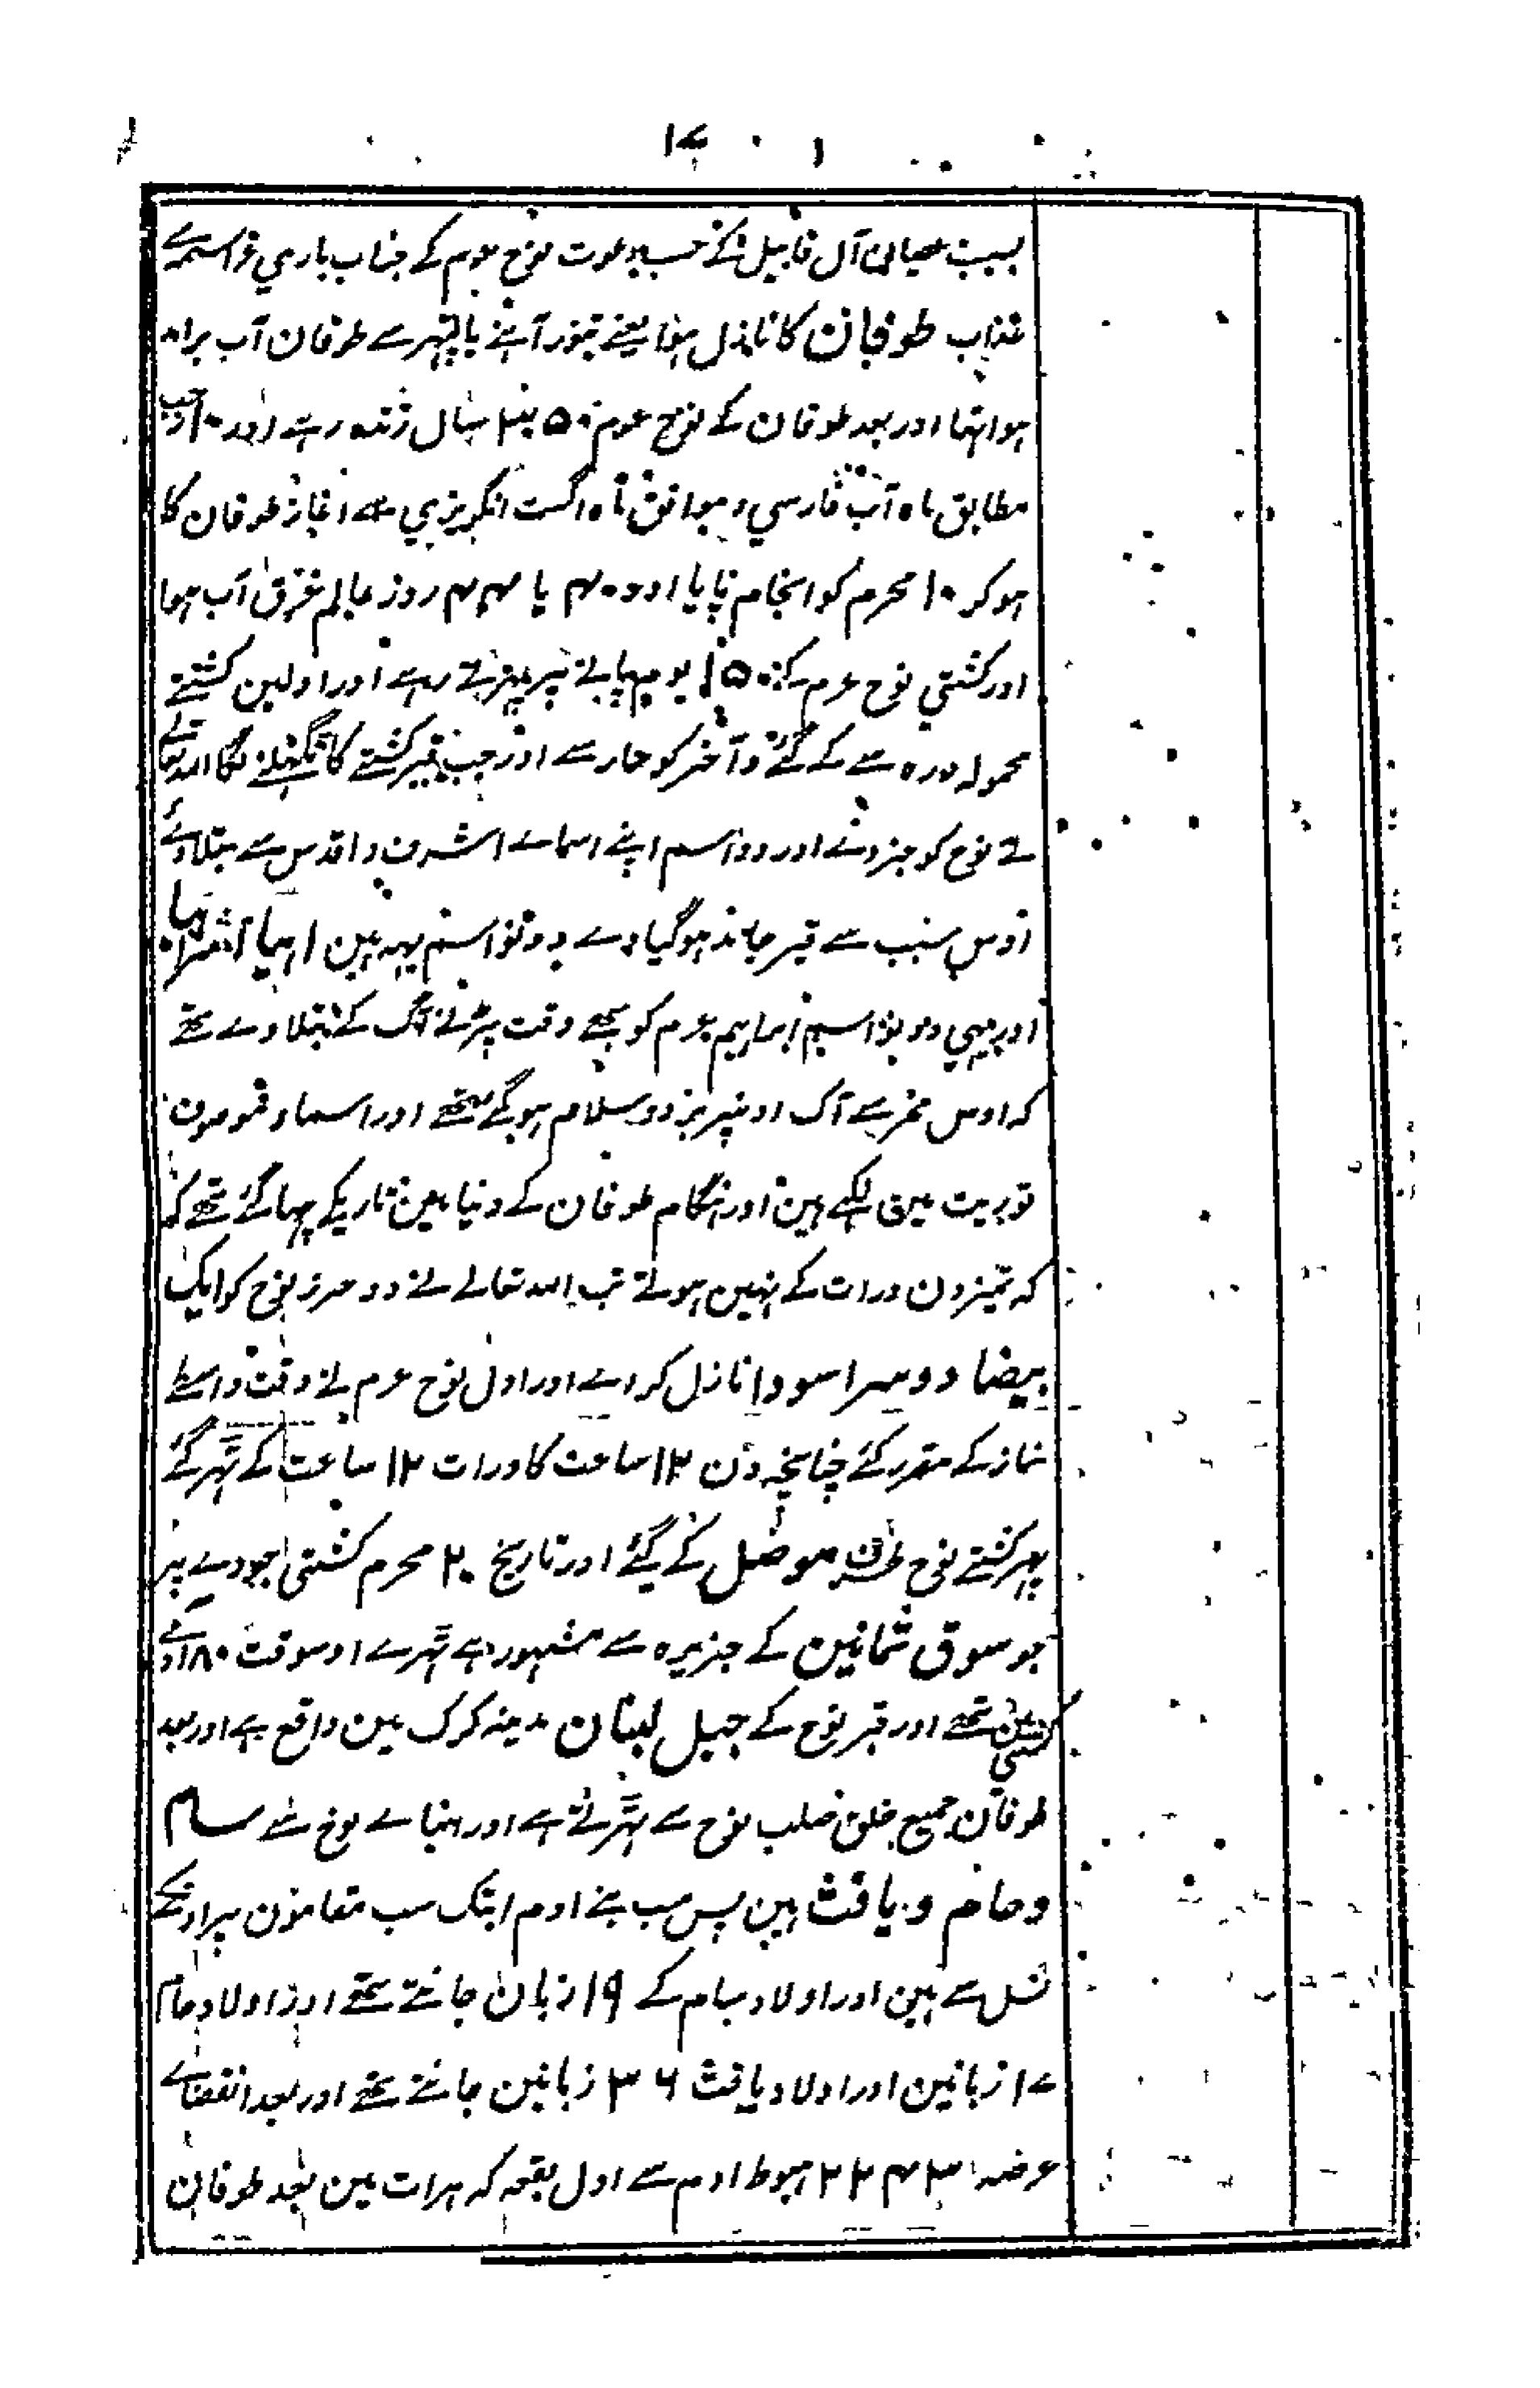 ۱۷
بسبب عصیان آل قابیل کے حسب دعوت نوح عوم کے جناب باری عز اسمہ سے
عذاب طوفان کا نازل ہوا یعنے تنور آہنے یا پتہر سے طوفان آب برامد
ہوا تہا اور بعد طوفان کے نوح عوم ۲۵۰ سال زندہ رہے اور ۱۰ رجب
مطابق ماہ آب فارسي و موافق ماہ اگست انگریزي سے اغاز طوفان کا
ہوکر ۱۰ محرم کو انجام پایا اور ۴۰ یا ۴۴ روز عالم غرق آب ہوا
اور کشتي نوح عرم کے ۱۵۰ یوم پانے پر پہرتے رہے اور اولین کشتے
محمولہ درہ سے کے گئے و آخر کو حار سے اور جب قیر کشتے کا پگہلنے لگا اللہ تعالے
نے نوح کو خبر دے اور دو اسم اپنے اسماے اشرف و اقدس سے بتلا دئے
اوس سبب سے قیر جامد ہوگیا وے دونو اسم یہہ ہین اہیا اشراہیا
اور یہي دونو اسم ابراہیم عرم کو بہے وقت پڑنے آگ کے بتلا دے تہے
کہ اوس سے آگ اونپر برد و سلام ہوگے تہے اور اسما
توریت مین لکہے ہین اور ہنگام طوفان کے دنیا مین تاریکے چہا گئے تہے
کہ تمیز دن و رات کے نہین ہوتے تب اللہ تعالے نے دو حرز نوح کو ایک
بیضا دوسرا سودا نازل کردے اور اول نوح عرم نے وقت واسطے
نماز کے مقرر کئے چنانچہ دن ۱۲ ساعت کا و رات ۱۲ ساعت کے ٹہر گئے
پہر کشتے نوح طرف موصل کے گئے اور تاریخ ۲۰ محرم کشتی جودے پر
جو سوق ثمانین کے جزیرہ سے مشہور ہے ٹہرے اوسوقت ۸۰ آدمے
کشتی مین تہے اور قبر نوح کے جبل لبنان مدینہ کرک مین واقع ہے اور بعد
طوفان جمیع خلق صلب نوح سے ہے اور ابناے نوح سے سام
و حام و یافث ہین پس سب بنے ادم ابتک سب مقامون پر اونکے
نسل سے ہین اور اولاد سام کے ۱۹ زبان جانتے تہے اور اولاد حام
۱۷ زبانین اور اولاد یافث ۳۶ زبانین جانتے تہے اور بعد انقضاے
عرصہ ۲۲۴۳ ہبوط ادم سے اول بقعہ کہ ہرات مین بعد طوفان